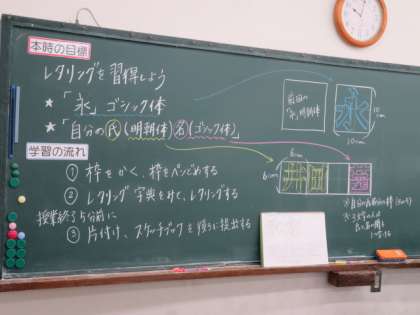 本時の目標
レタリングを習得しよう
★「永」ゴシック体
★「自分の氏(明朝体)名(ゴシック体)」
学習の流れ
① 枠をかく、枠をペンどめする
② レタリング字典をみて、レタリングする
授業終了5分前に
③ 片付け、スケッチブックを後ろに提出する
前回の
「永」明朝体
永
10cm
10cm
6cm
6cm
井田